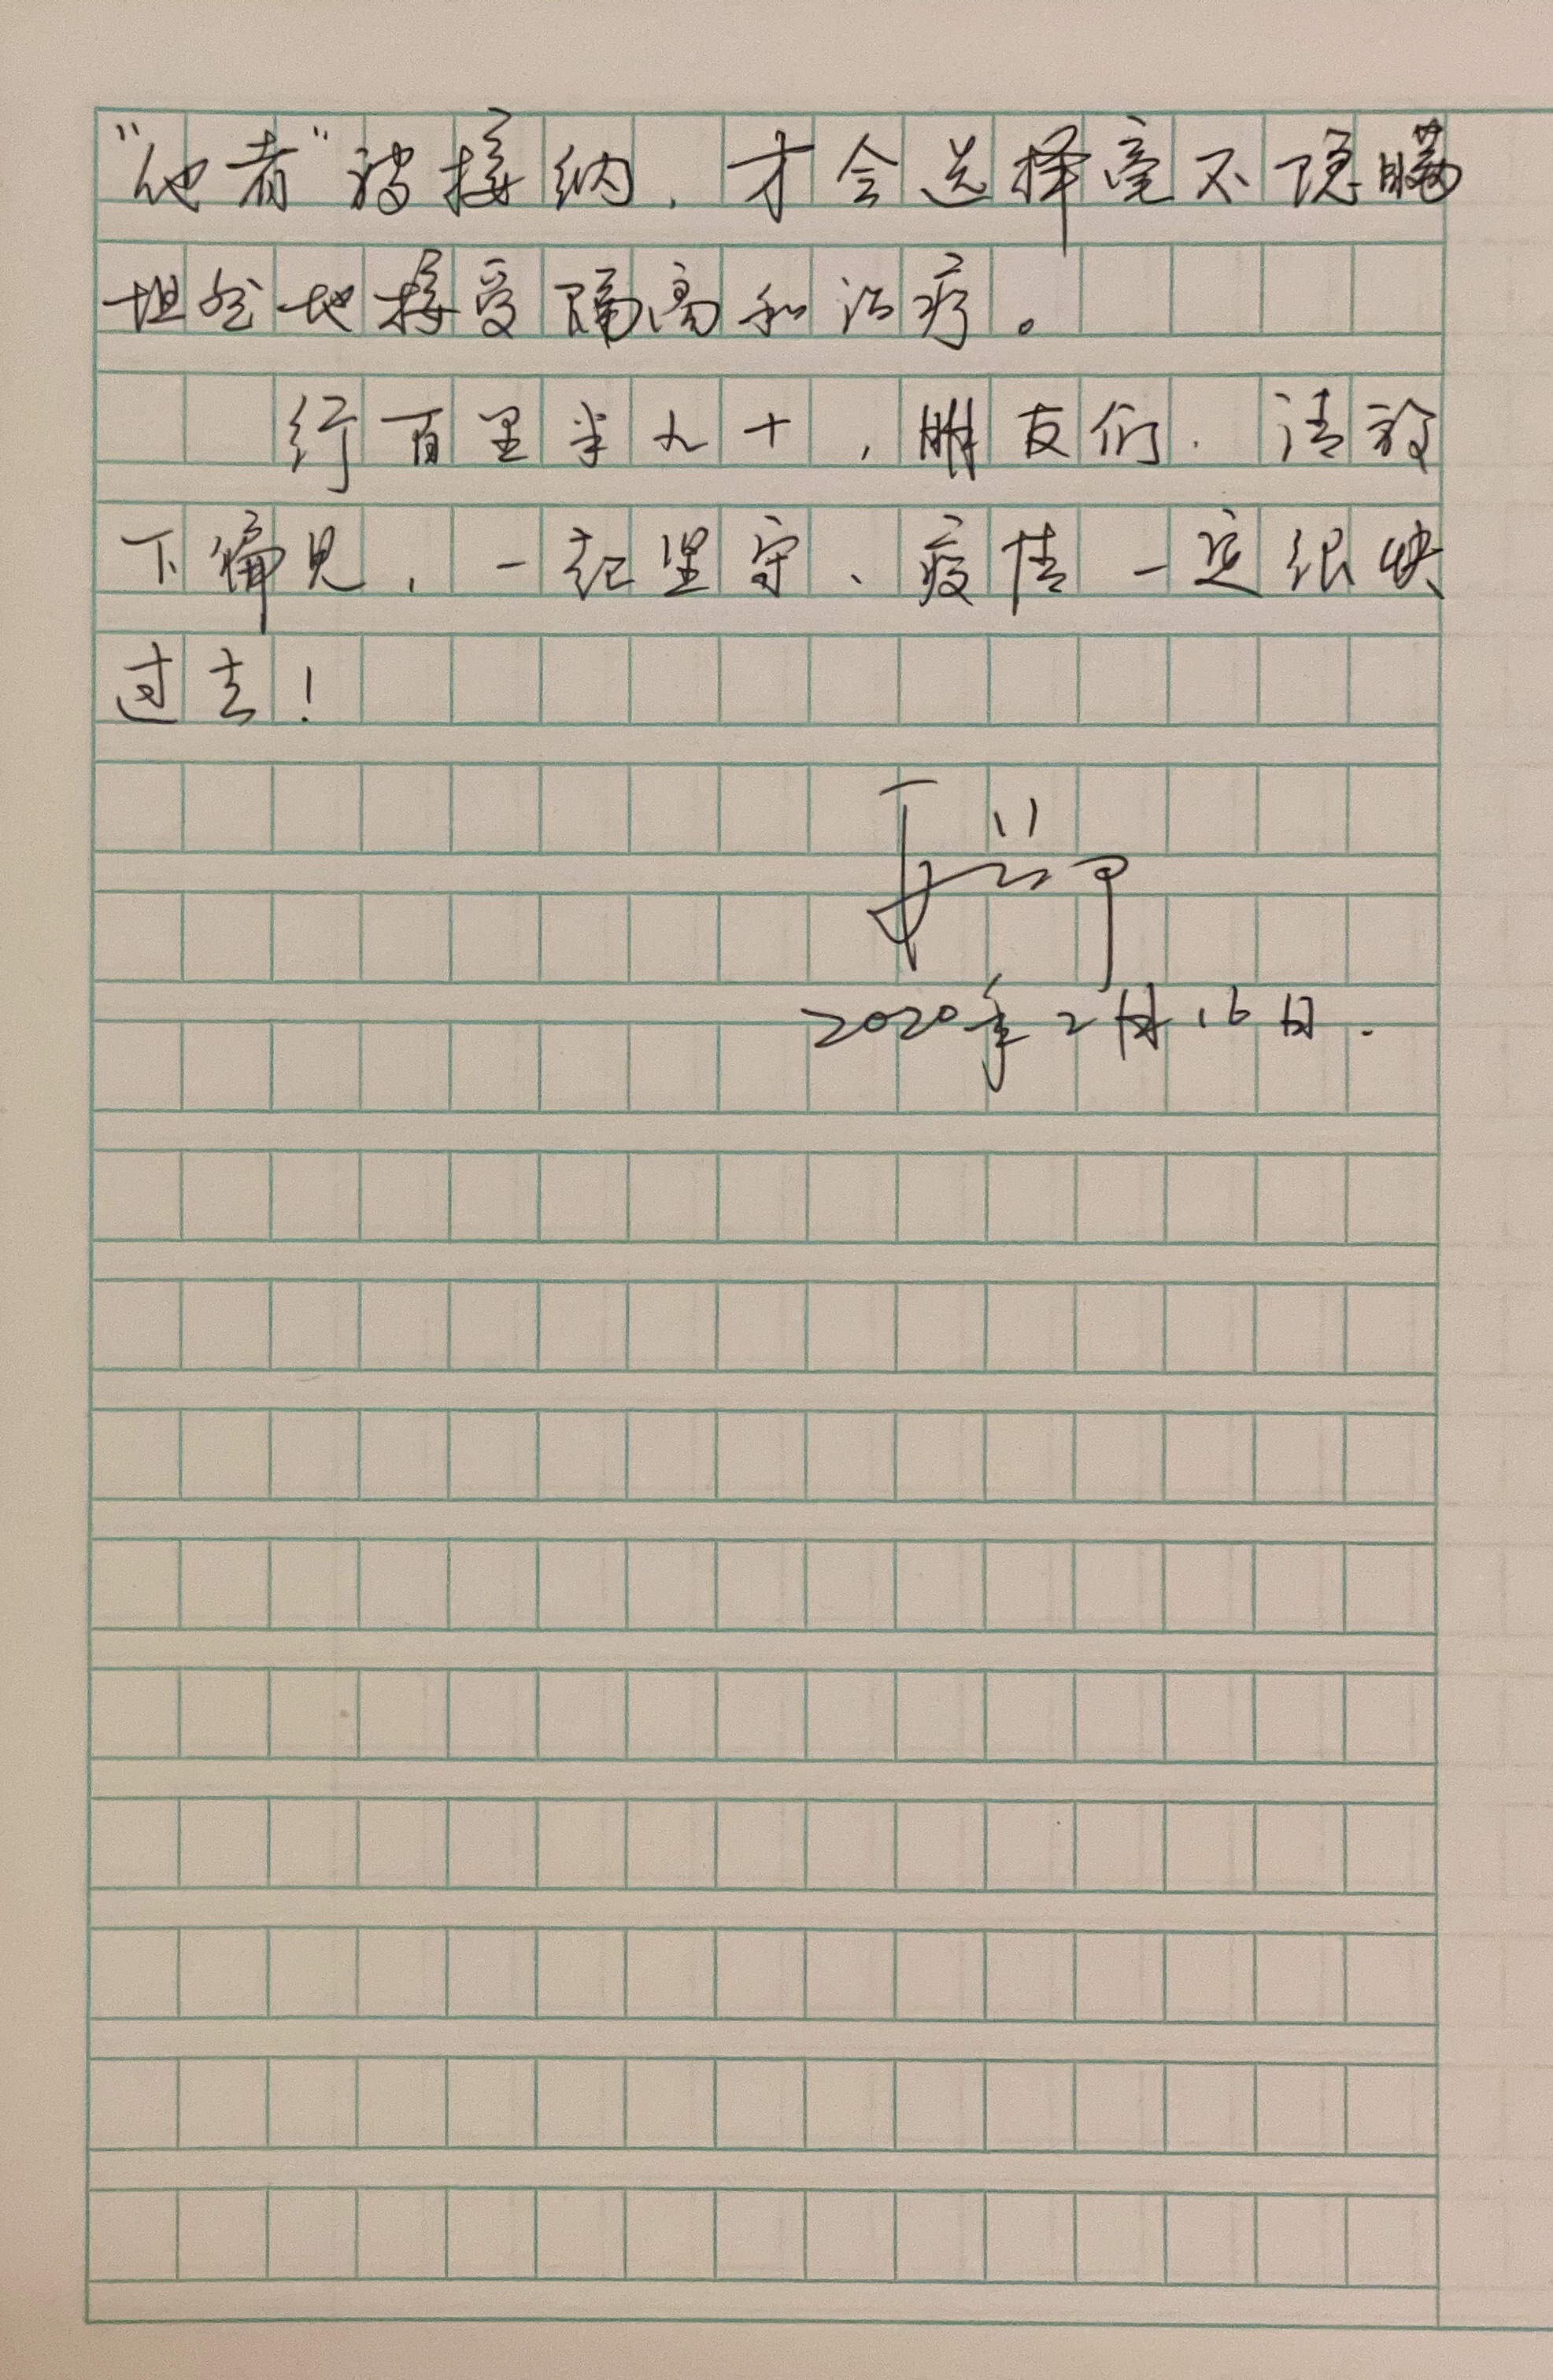 “他者”被接纳，才会选择毫不隐瞒
坦然地接受隔离和治疗。
行百里半九十，朋友们．请放
下偏见，一起坚守、疫情一定很快
过去！
2020年2月16日．